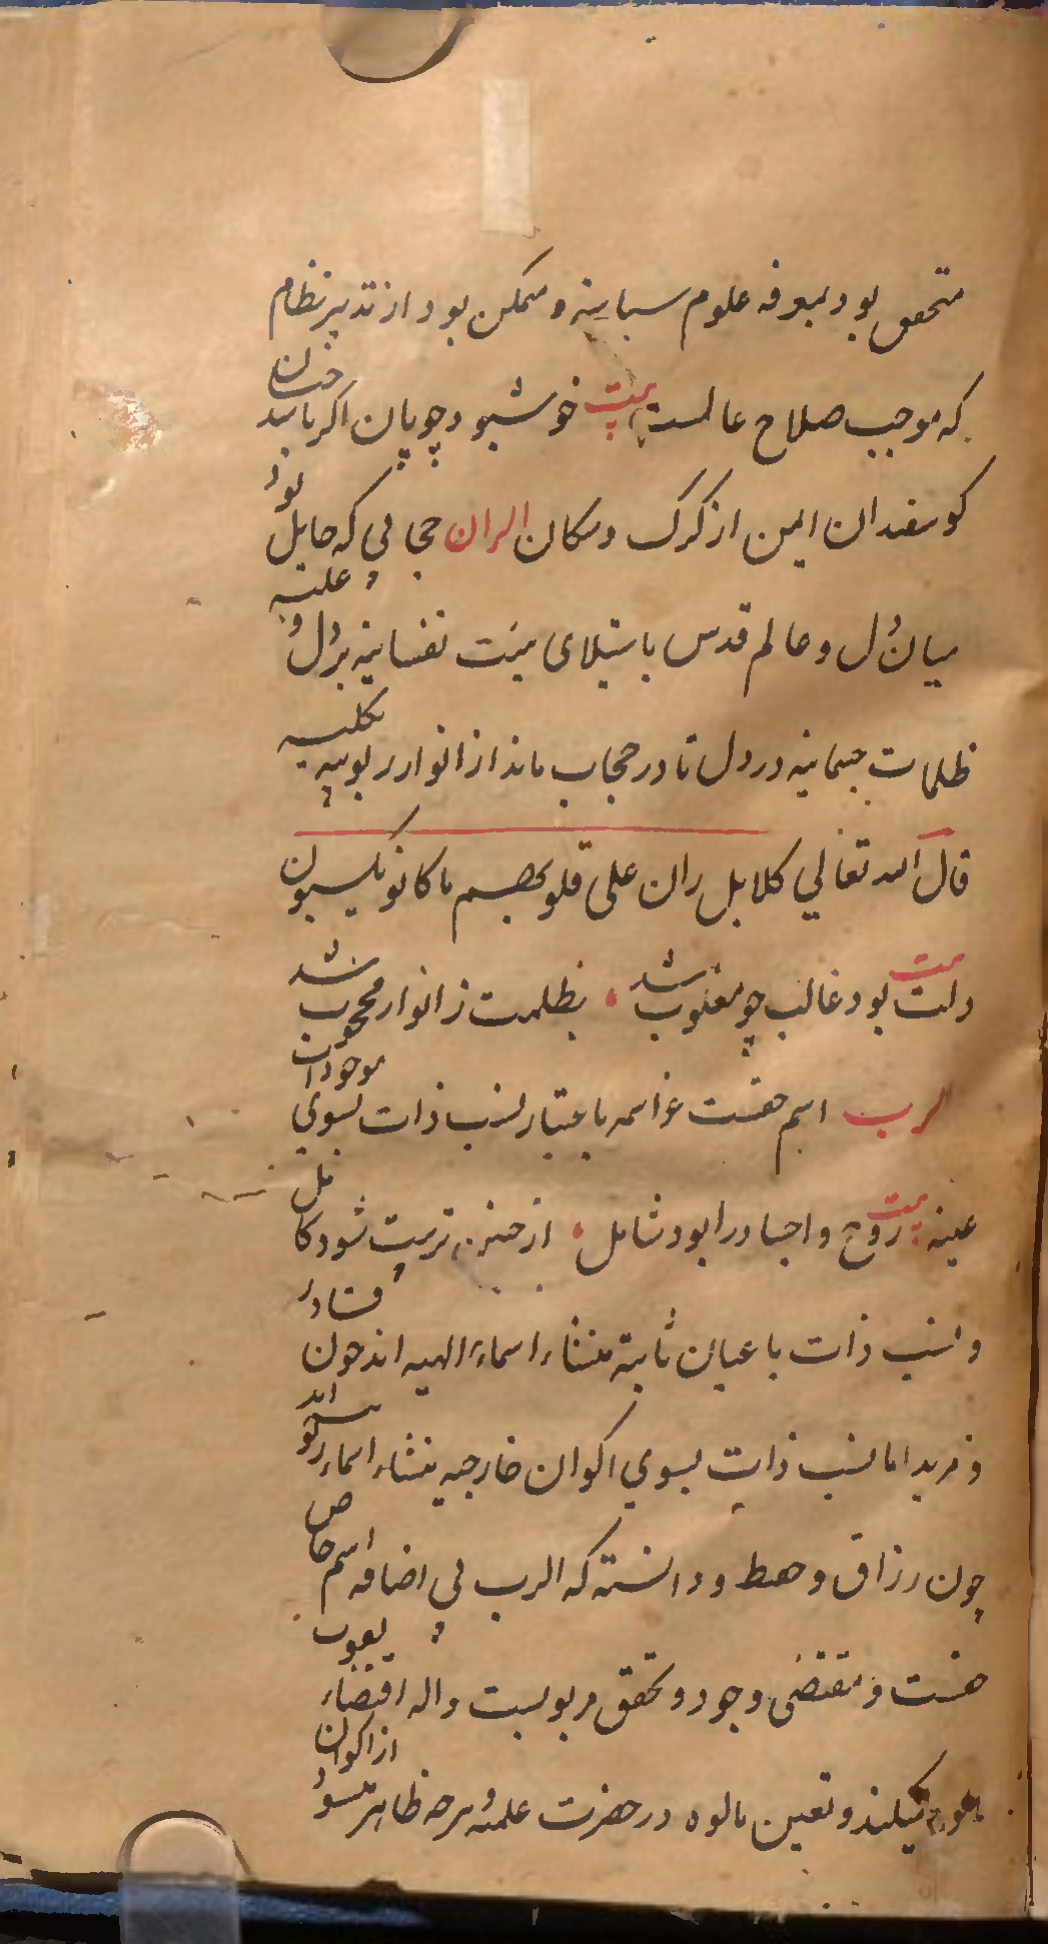 متحقق بود بمعرفه علوم سیاسیه و متمکن بود از تدبیر نظام
که موجب صلاح عالمست بیت خوش بود چوپان اگر باشد چنان
کوسفندان ایمن از کرک و سکان الران حجابی که حایل بود
میان دل و عالم قدس باستیلای هیئت نفسانیه بر دل و غلبه
ظلمات جسمانیه در دل تا در حجاب ماند از انوار ربوبیه بکلیه
قال الله تعالي کلا بل ران علی قلوبهم ما کانو یکسبون
بیت دلت بود غالب چو مغلوب شد بظلمت ز انوار محجوب شد
الرب اسم حقست عز اسمه باعتبار نسب ذات بسوي موجودات
عینیه بیت روح و اجساد را بود شامل از حق تربیت شود کامل
و نسب ذات باعیان ثابته منشاء اسماء الهیه اند چون قادر
و مرید اما نسب ذات بسوي اکوان خارجیه منشاء اسماء ربوبیه اند
چون رزاق و حفیظ و دانسته که الرب في اضافه اسم خاص
حقست و مقتضی وجود و تحقق مربوبست و اله اقتضاء
میکند و تعین مالوه در حضرت علمیه و هرچه ظاهر میشود از اکوان